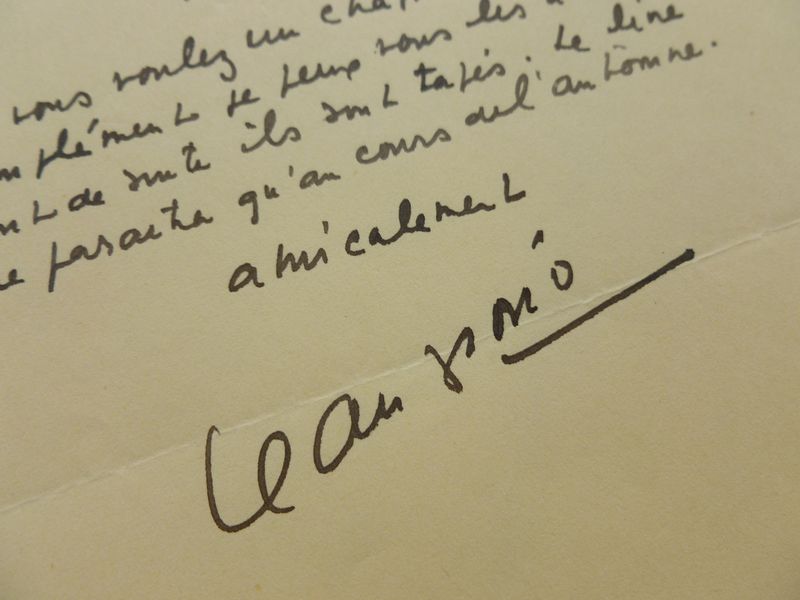 vous voulez un chap
mplément je peux vous les
nt de suite ils sont tapés. Le livre
ne paraîtra qu'au cours de l'automne.
amicalement
Jean Giono